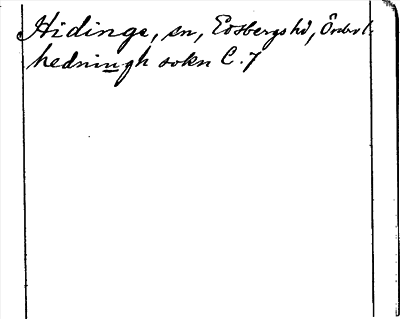 Hidinge, sn, Edsbergs hd, Örebro l.
hedningh sokn C. 7